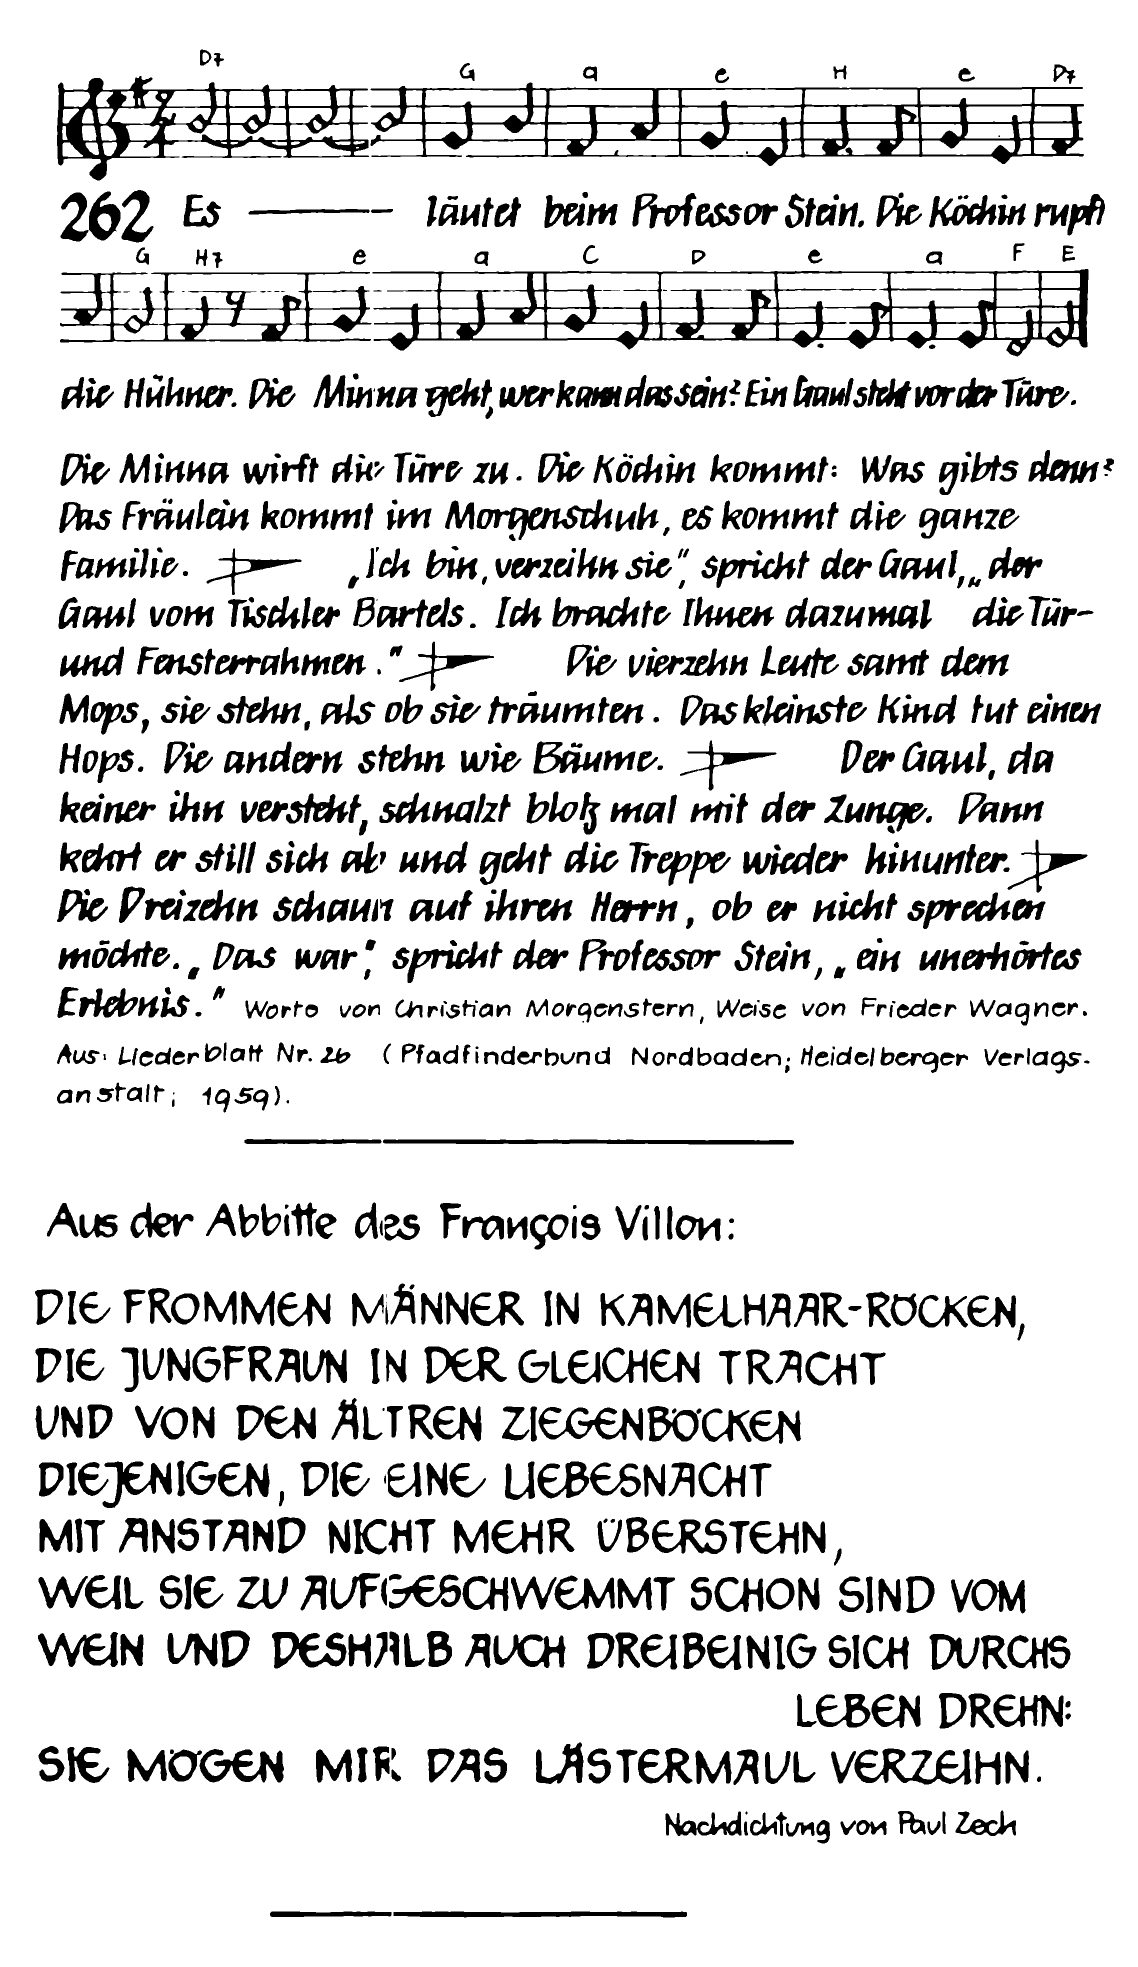 D7 G a e H e D7
262 Es ——— läutet beim Professor Stein. Die Köchin rupft
G H7 e a C D e a F E
die Hühner. Die Minna geht, wer kann das sein? Ein Gaul steht vor der Türe.
Die Minna wirft die Türe zu. Die Köchin kommt: Was gibts denn?
Das Fräulein kommt im Morgenschuh, es kommt die ganze
Familie. „Ich bin, verzeihn sie“, spricht der Gaul, „der
Gaul vom Tischler Bartels. Ich brachte Ihnen dazumal die Tür-
und Fensterrahmen.“ Die vierzehn Leute samt dem
Mops, sie stehn, als ob sie träumten. Das kleinste Kind tut einen
Hops. Die andern stehn wie Bäume. Der Gaul, da
keiner ihn versteht, schnalzt bloß mal mit der Zunge. Dann
kehrt er still sich ab und geht die Treppe wieder hinunter.
Die Dreizehn schaun auf ihren Herrn, ob er nicht sprechen
möchte. „Das war“, spricht der Professor Stein, „ein unerhörtes
Erlebnis.“ Worte von Christian Morgenstern, Weise von Frieder Wagner.
Aus: Liederblatt Nr. 26 (Pfadfinderbund Nordbaden; Heidelberger Verlags-
anstalt; 1959).
Aus der Abbitte des François Villon:
DIE FROMMEN MÄNNER IN KAMELHAAR-RÖCKEN,
DIE JUNGFRAUN IN DER GLEICHEN TRACHT
UND VON DEN ÄLTREN ZIEGENBÖCKEN
DIEJENIGEN, DIE EINE LIEBESNACHT
MIT ANSTAND NICHT MEHR ÜBERSTEHN,
WEIL SIE ZU AUFGESCHWEMMT SCHON SIND VOM
WEIN UND DESHALB AUCH DREIBEINIG SICH DURCHS
LEBEN DREHN:
SIE MÖGEN MIR DAS LÄSTERMAUL VERZEIHN.
Nachdichtung von Paul Zech